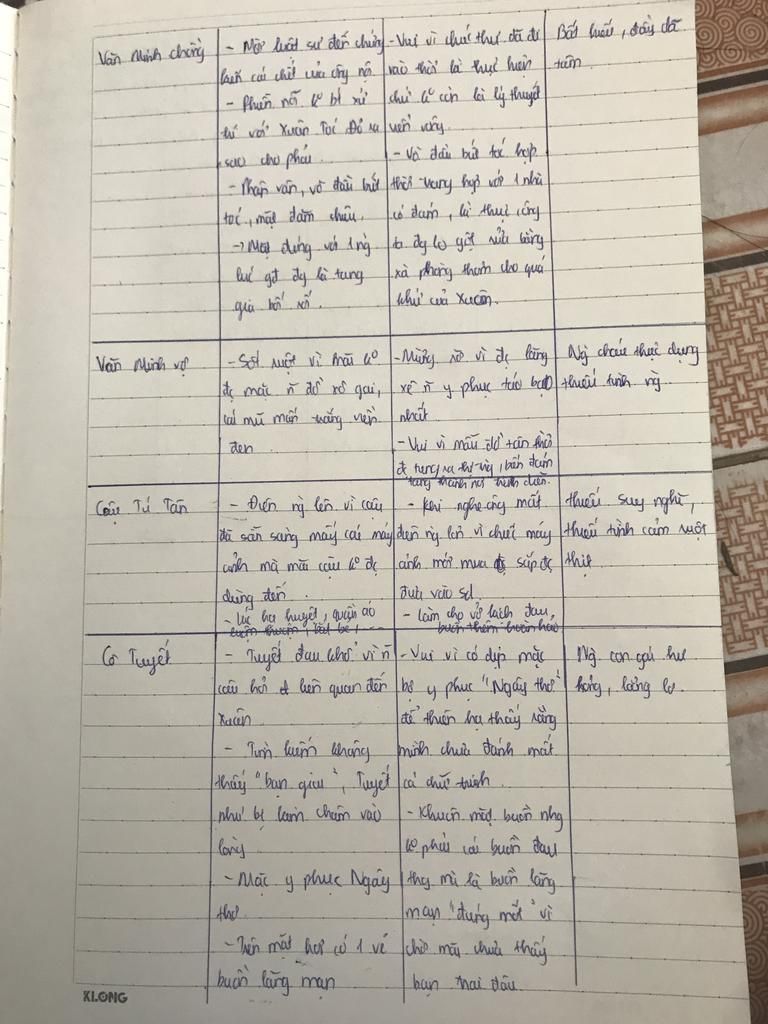 Văn Minh chồng
- Mời luật sư đến chứng
kiến cái chết của công nộ
- Phiền nỗi k° bt xử
trí với Xuân Tóc Đỏ ra
sao cho phải.
- Phân vân, vò đầu bứt
tóc, mặt đăm chiêu.
-> Mặt đúng với 1 ng
lúc gđ đg là tang
gia bối rối.
- Vui vì chúc thư đã đi
vào thời kì thực hiện
chứ k° còn là lý thuyết
viển vông.
- Vò đầu bứt tóc hợp
thời trang hợp với 1 nhà
có đám, là thực công
ta đg lo gột rửa bằng
xà phòng thơm cho quá
khứ của Xuân.
Bất hiếu, đầy dã
tâm.
Văn Minh vợ
- Sốt ruột vì mãi k°
đc mặc n đồ xô gai,
cái mũ mấn trắng viền
đen
- Mừng rỡ vì đc lăng
xê n y phục táo bạo
nhất
- Vui vì mẫu đồ tân thời
đc tung ra thị trg, biến đám
tang thành nơi trình diễn.
Ng cháu thực dụng
thiếu tình ng.
Cậu Tú Tân
- Điên ng lên vì cậu
đã sẵn sàng mấy cái máy
ảnh mà mãi cậu k° đc
dùng đến.
- Lúc hạ huyệt, quần áo
luộm thuộm, bắt bẻ,...
- Khi nghe ông mất
điên ng lên vì chiếc máy
ảnh mới mua sắp đc
đưa vào sd.
- Làm cho vở kịch đau
buồn thêm hoàn hảo
thiếu suy nghĩ,
thiếu tình cảm ruột
thịt.
Cô Tuyết
- Tuyết đau khổ vì n
câu hỏi liên quan đến
Xuân
- Tìm kiếm không
thấy "bạn giai", Tuyết
như bị kim châm vào
lòng
- Mặc y phục Ngây
thơ
- Trên mặt hơi có 1 vẻ
buồn lãng mạn
- Vui vì có dịp mặc
bộ y phục "Ngây thơ"
để thiên hạ thấy rằng
mình chưa đánh mất
cả chữ trinh.
- Khuôn mặt buồn nhg
k° phải cái buồn đau
thg mà là buồn lãng
mạn "đúng mốt" vì
chờ mãi chưa thấy
bạn trai đâu.
Ng con gái hư
hỏng, lẳng lơ.
KLONG